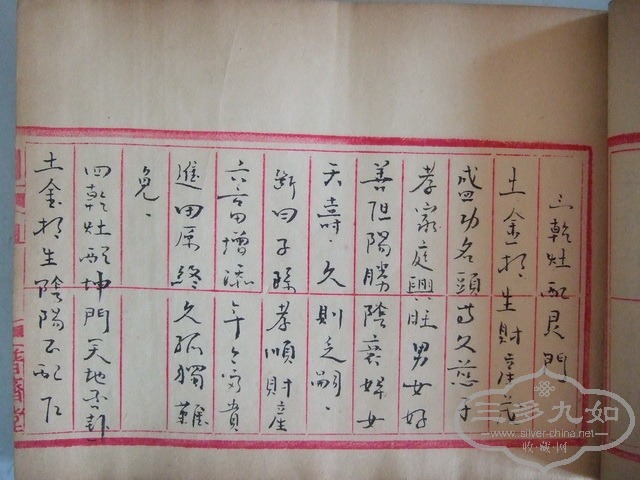 三乾灶配艮門
土金相生財產茂
盛功名頭
孝家庭興旺男女好
善但陽勝陰衰婦女
夭壽久則乏嗣
斷曰子孫孝順財產
六畜增添年年富貴
進田原終久孤獨難
免
四乾灶配坤門天地否卦
土金相生陰陽正配
三多九如
www.silver-china.net
收·藏·网